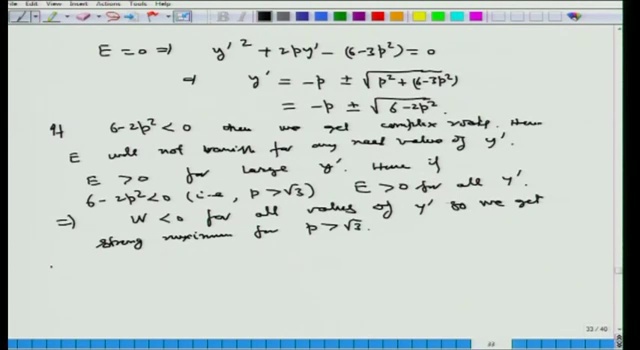 Edit View Insert Actions Tools Help
E = 0 ⇒ y'² + 2py' - (6-3p²) = 0
⇒ y' = -p ± √(p² + (6-3p²))
= -p ± √(6-2p²).
If 6-2p² < 0 then we get complex roots. Hence
E will not vanish for any real value of y'.
E > 0 for large y'. Hence if
6-2p² < 0 (i.e., p > √3) E > 0 for all y'.
⇒ W < 0 for all values of y' so we get
strong maximum for p > √3.
33 / 40
33